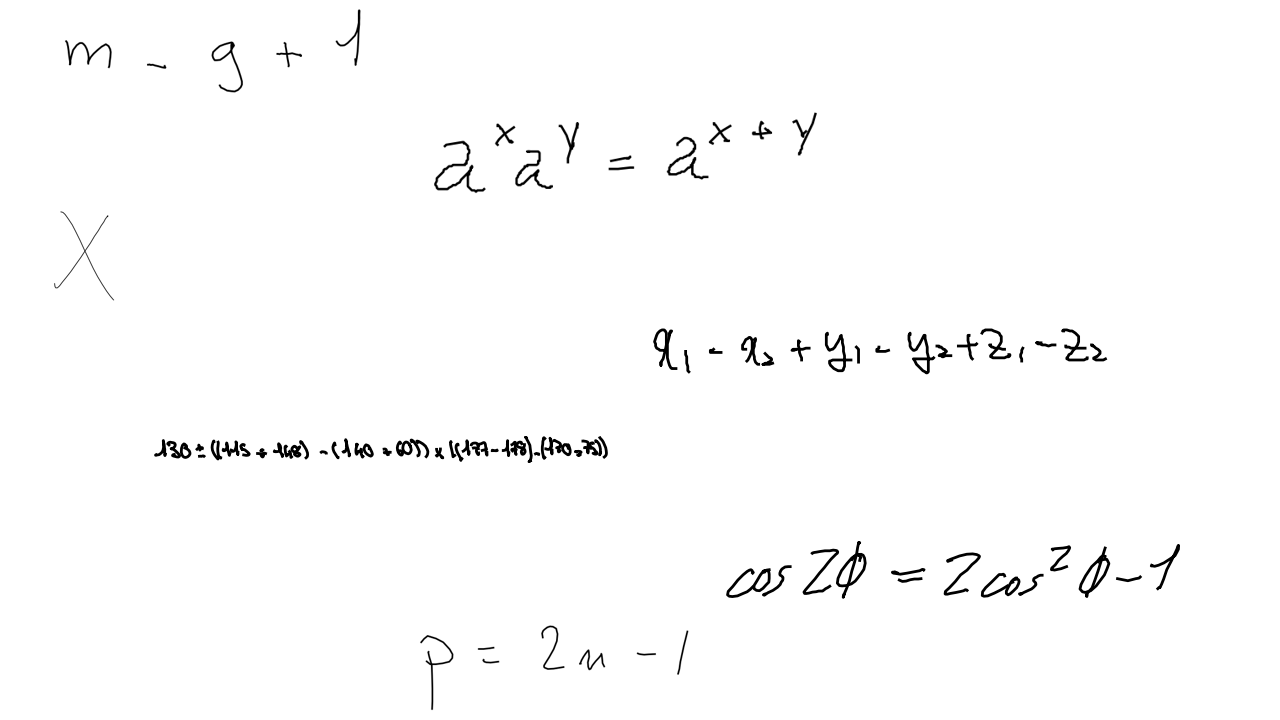 m - g + 1
a^x a^y = a^{x + y}
X
x_1 - x_2 + y_1 - y_2 + z_1 - z_2
130 ± ((115 + 148) - (140 + 60)) × ((177 - 178) - (170 - 75))
cos 2ϕ = 2 cos^2 ϕ - 1
p = 2n - 1